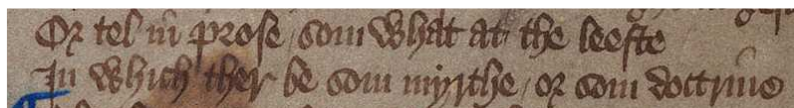 Or tel in prose / som what at the leeste
In which ther be som myrthe / or som doctrine